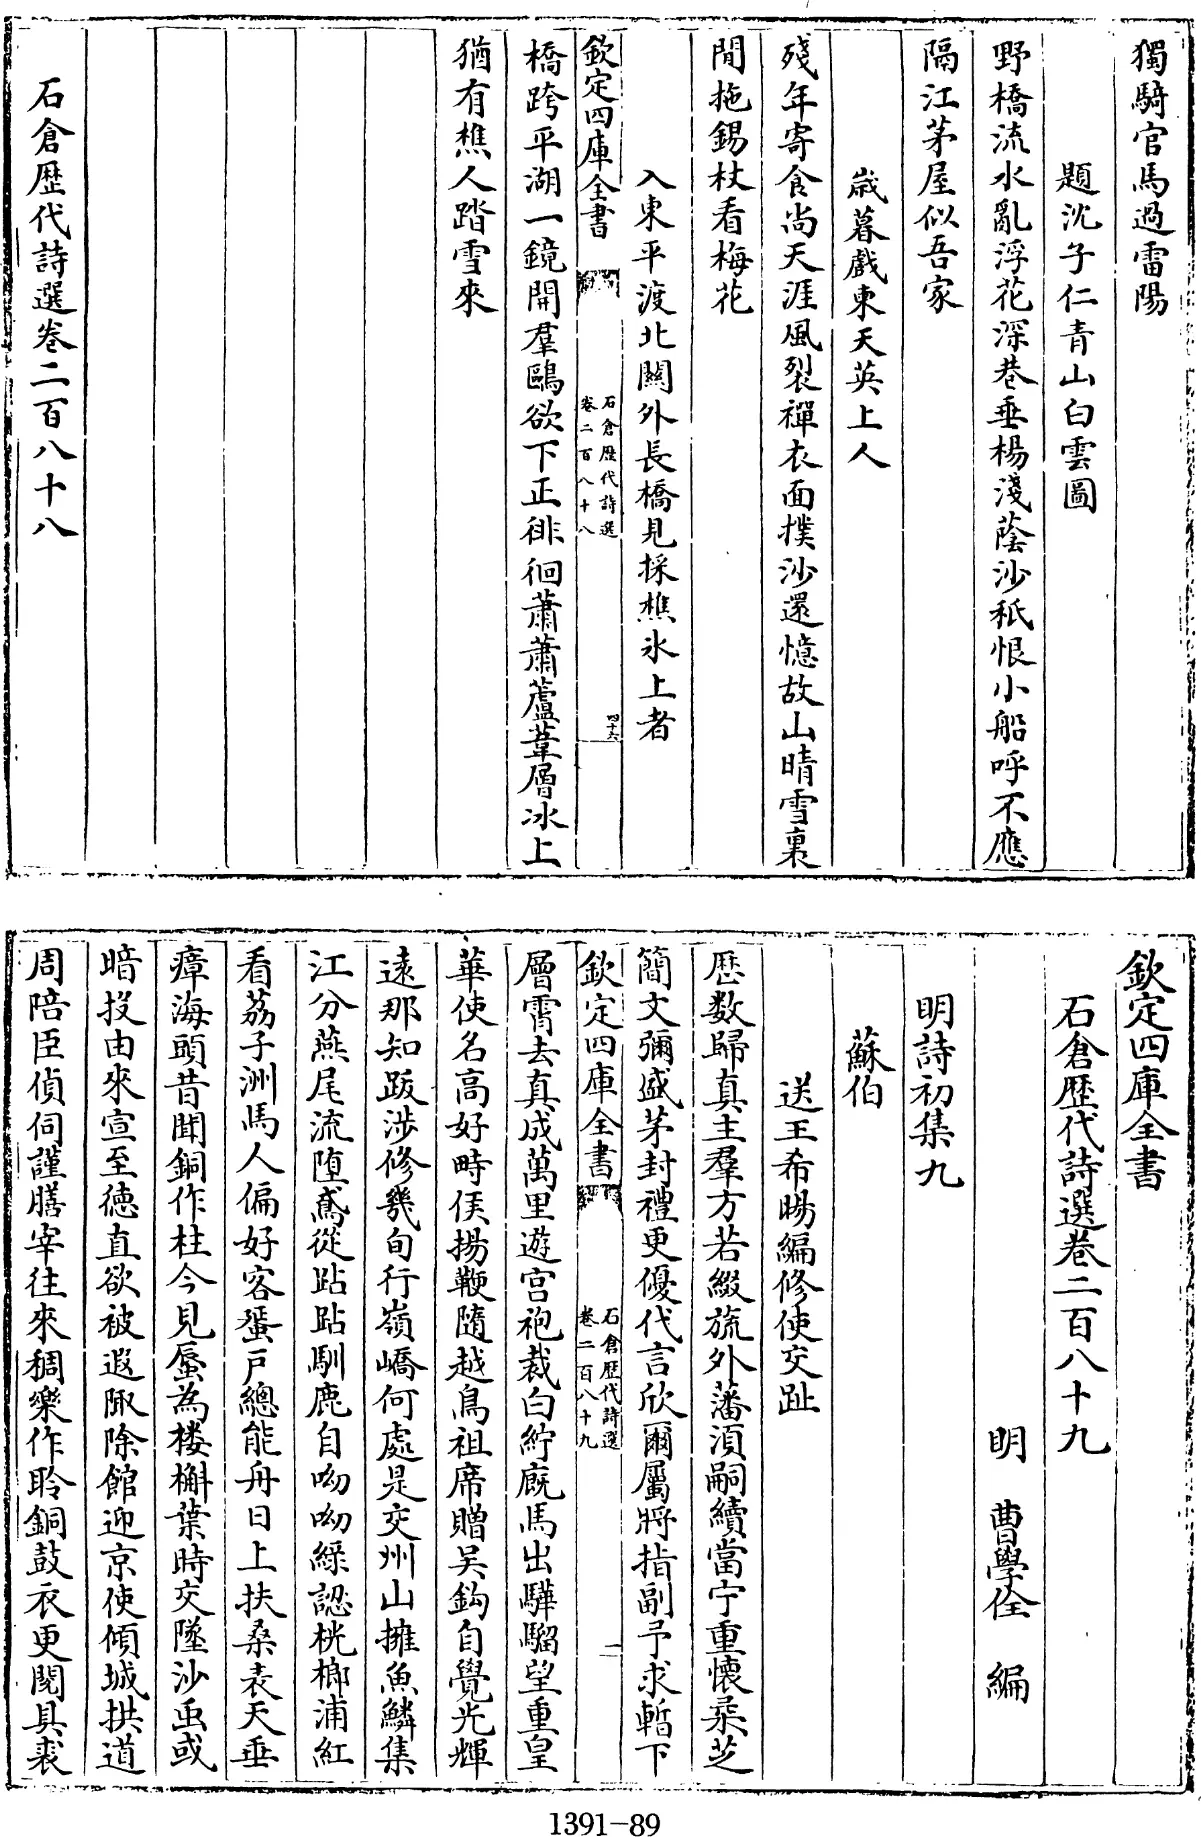 獨騎官馬過雷陽
題沈子仁青山白雲圖
野橋流水亂浮花深巷垂楊淺蔭沙秖恨小船呼不應
隔江茅屋似吾家
歲暮戲柬天英上人
殘年寄食尚天涯風裂禪衣面撲沙還憶故山晴雪裏
閒拖錫杖看梅花
入東平渡北闗外長橋見採樵氷上者
欽定四庫全書
石倉歷代詩選
卷二百八十八
四十六
橋跨平湖一鏡開羣鷗欲下正徘徊蕭蕭蘆葦層冰上
猶有樵人踏雪來
石倉歴代詩選卷二百八十八
欽定四庫全書
石倉歴代詩選卷二百八十九
明 曹學佺 編
明詩初集九
蘇伯
送王希暘編修使交趾
歴數歸真主羣方若綴旒外藩湏嗣續當宁重懷柔芝
簡文彌盛茅封禮更優代言欣爾屬將指副予求暫下
欽定四庫全書
石倉歴代詩選
卷二百八十九
一
層霄去真成萬里遊宫袍裁白紵廐馬出驊騮望重皇
華使名高好畤侯揚鞭隨越鳥祖席贈吴鈎自覺光輝
遠那知跋涉修幾旬行嶺嶠何處是交州山擁魚鱗集
江分燕尾流堕鳶從跕跕馴鹿自呦呦緑認桄榔浦紅
看荔子洲馬人偏好客蜑戸總能舟日上扶桑表天垂
瘴海頭昔聞銅作柱今見蜃為樓槲葉時交墜沙虫或
暗投由來宣至徳直欲被遐陬除館迎京使傾城拱道
周陪臣偵伺謹膳宰往來稠樂作聆銅鼓衣更閲具裘
1391-89